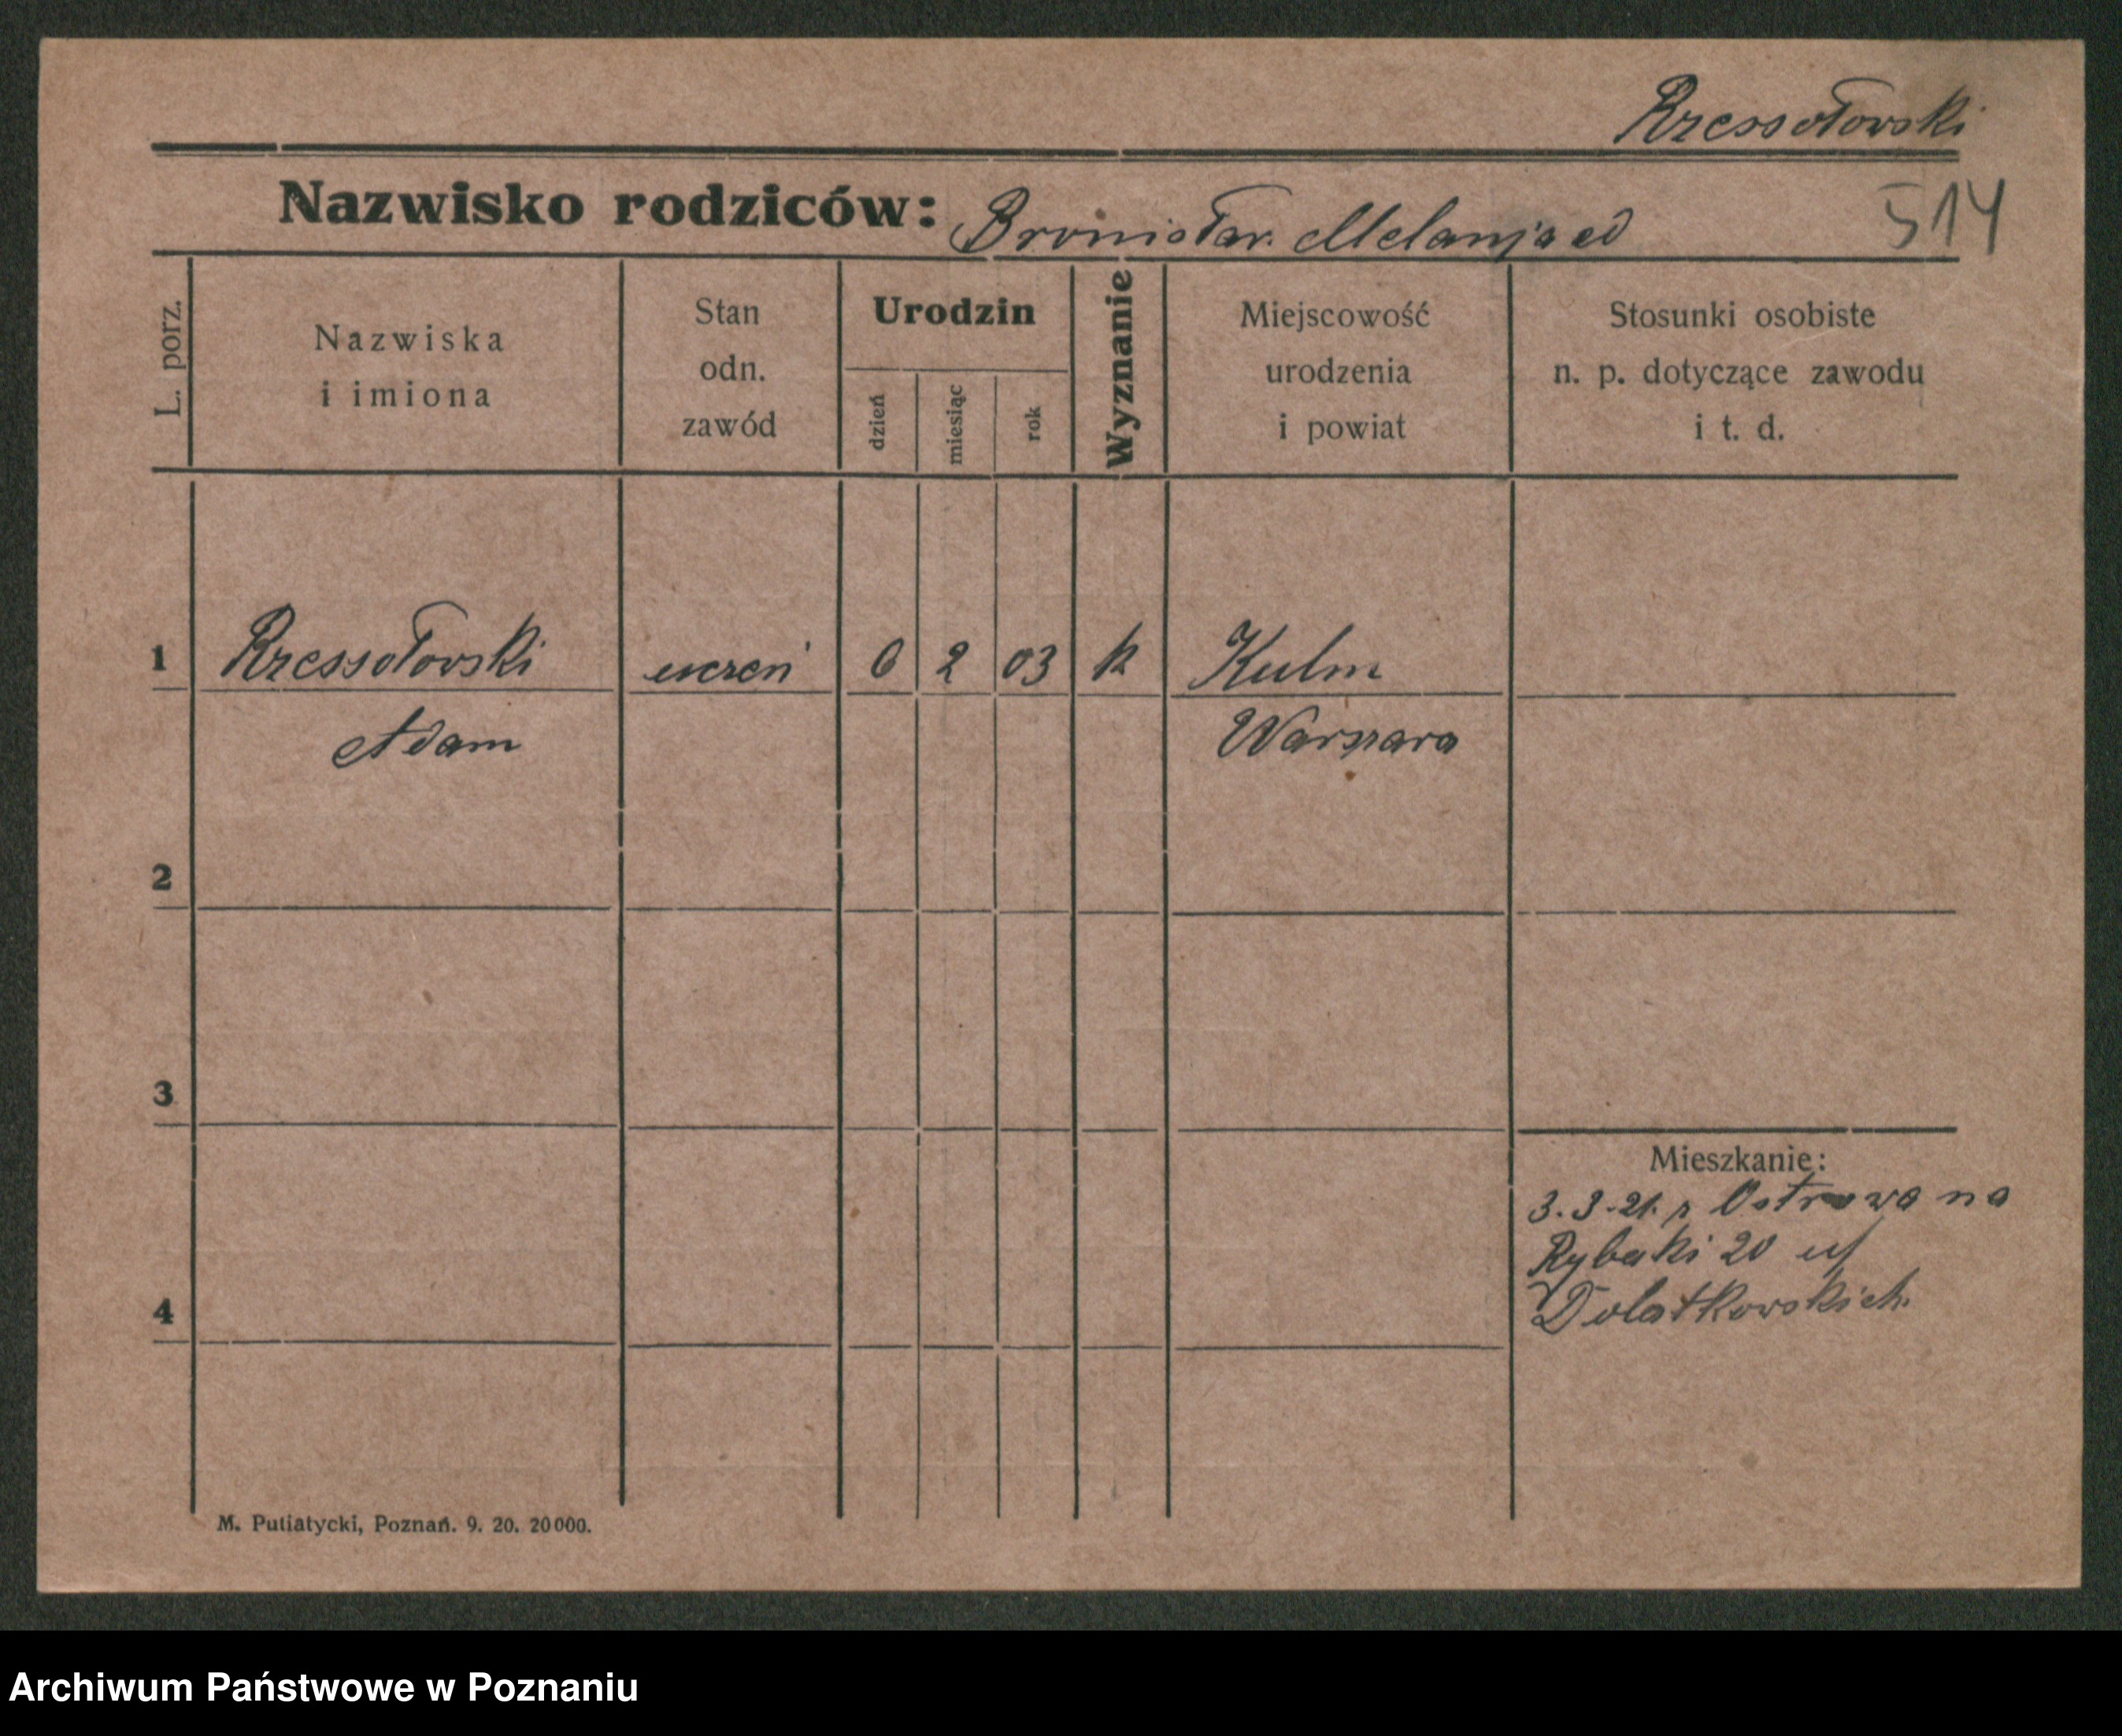 Rzessołowski
Nazwisko rodziców: Bronisław. Melanja ed
514
L. porz.
Nazwiska
i imiona
Stan
odn.
zawód
Urodzin
dzień
miesiąc
rok
Wyznanie
Miejscowość
urodzenia
i powiat
Stosunki osobiste
n. p. dotyczące zawodu
i t. d.
1 Rzessołowski uczeń 6 2 03 k Kulm
Adam Warszawa
2
3
Mieszkanie:
3.3.21. z Ostrowa na
Rybaki 20 u/
Dolatkowskich.
4
M. Putiatycki, Poznań. 9. 20. 20000.
Archiwum Państwowe w Poznaniu